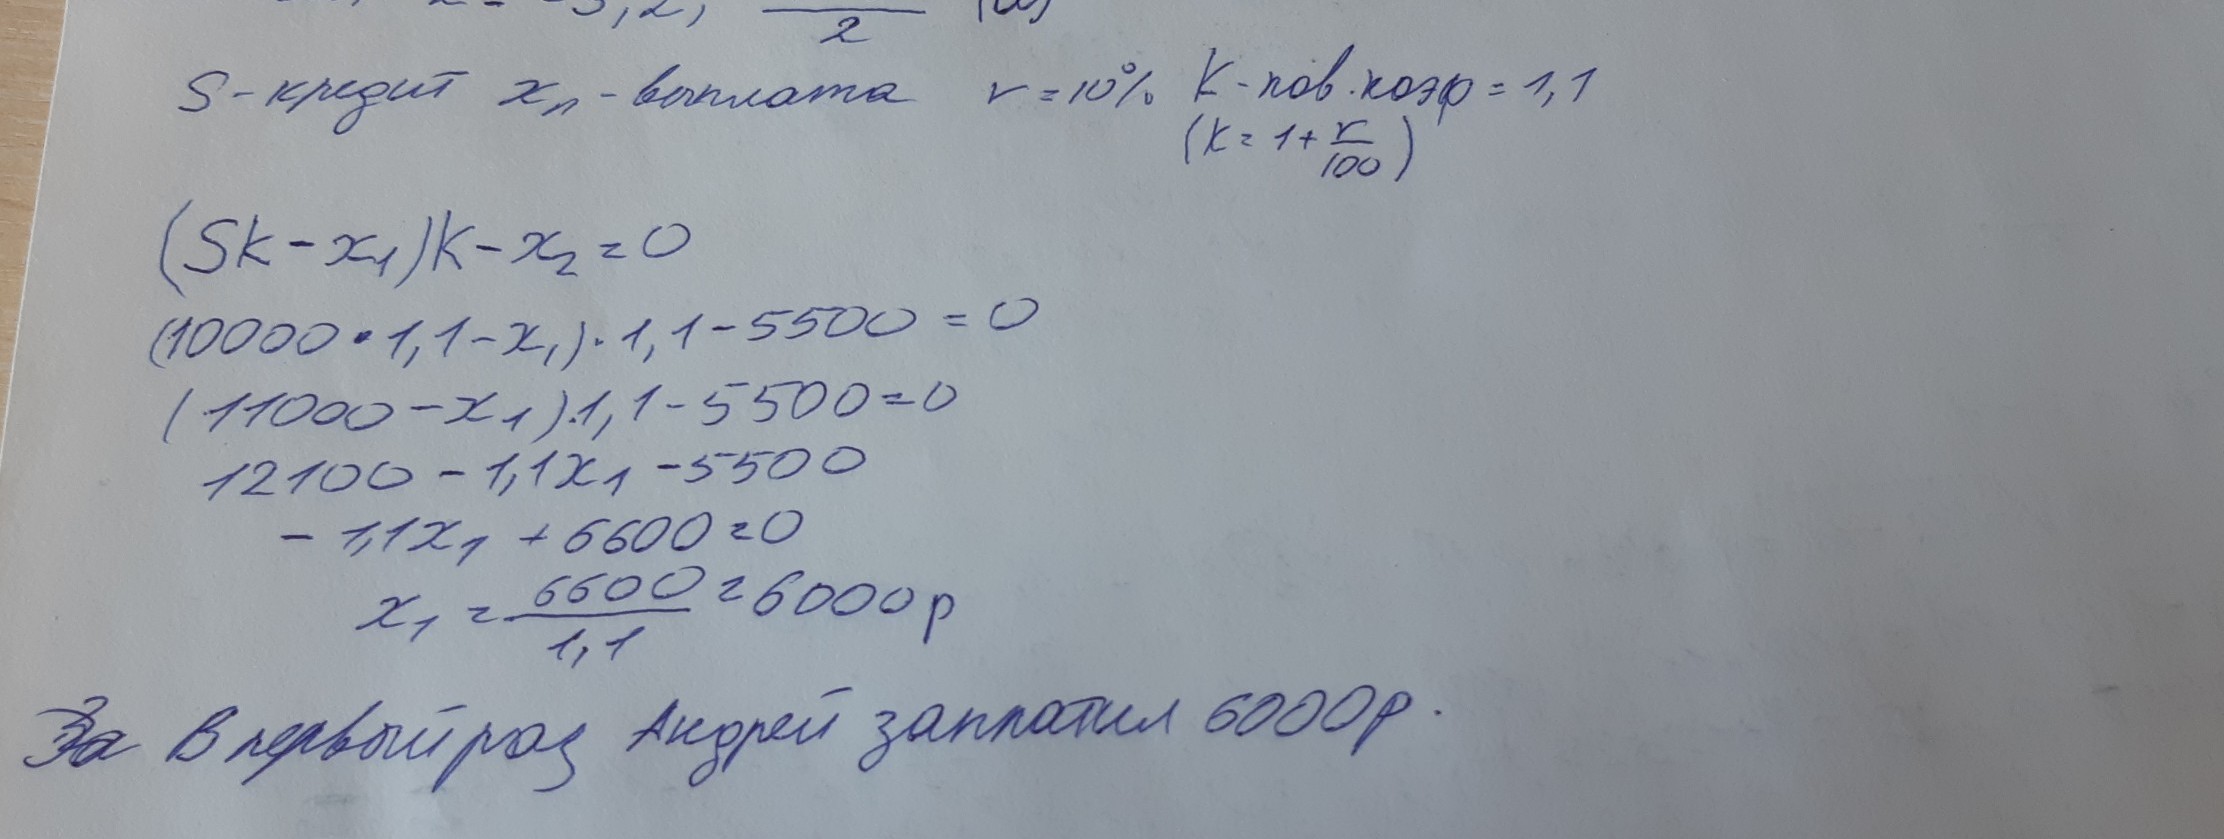 2
S-кредит xn-выплата r=10% K-пов.коэф=1,1
(k=1+r/100)
(Sk-x1)k-x2=0
(10000•1,1-x1)·1,1-5500=0
(11000-x1)·1,1-5500=0
12100-1,1x1-5500
-1,1x1+6600=0
x1=6600/1,1=6000р
В первый раз Андрей заплатил 6000р.